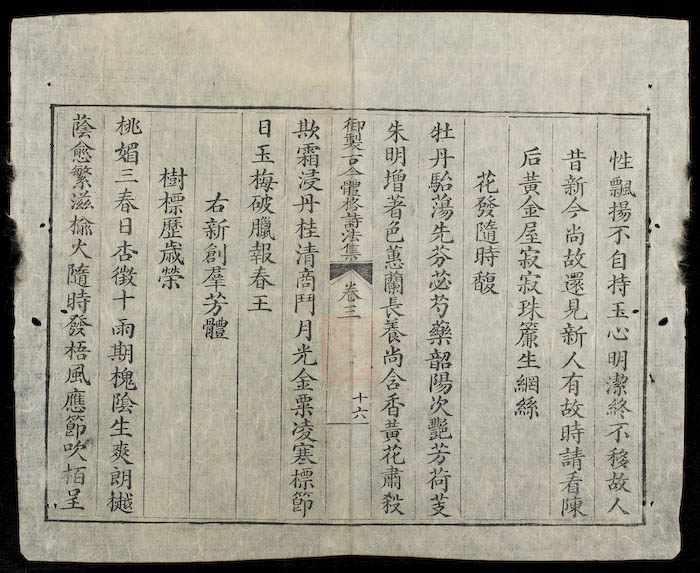 性飄揚不自持玉心明潔終不移故人
昔新今尚故還見新人有故時請看陳
后黃金屋寂寂珠簾生網絲
花發隨時馥
牡丹駘蕩先芬苾芍藥韶陽次艷芳荷芰
朱明增著色蕙蘭長養尚含香黃花肅殺
御製古今體格詩法集 卷三 十六
欺霜浸丹桂清商鬥月光金粟凌寒標節
日玉梅破臘報春王
右新創羣芳體
樹標歷歲榮
桃媚三春日杏徵十雨期槐陰生爽朗樾
蔭愈繁滋榆火隨時發梧風應節吹栢呈